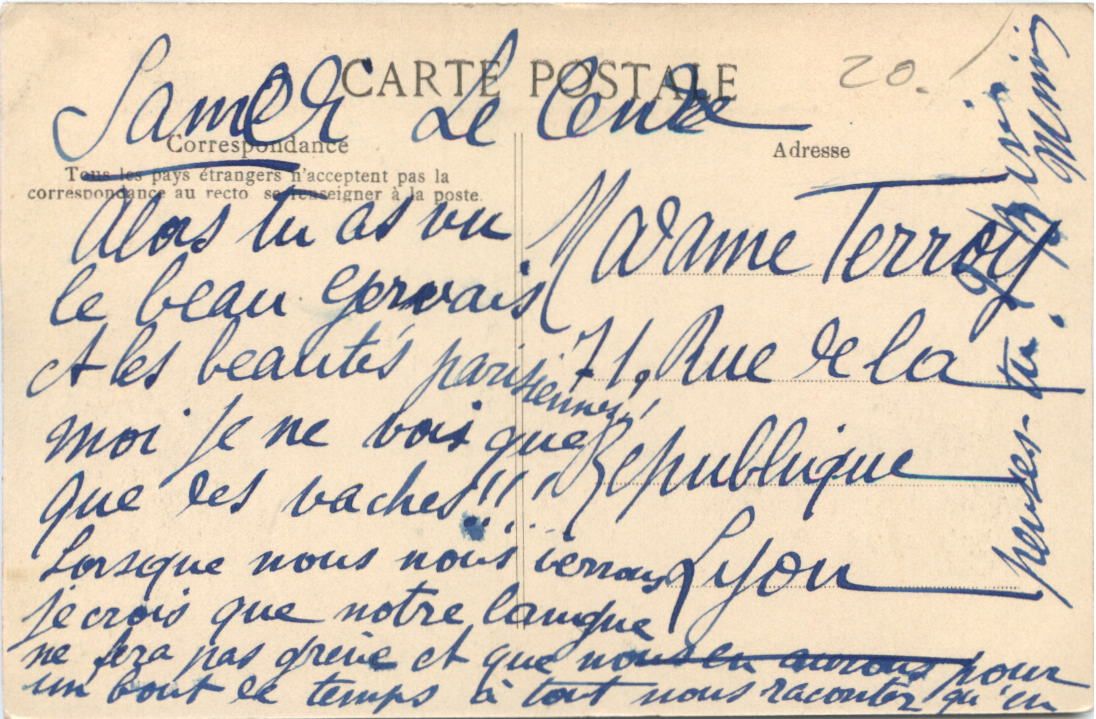 CARTE POSTALE
20.
Samedi Le Centre
Correspondance
Tous les pays étrangers n'acceptent pas la
correspondance au recto se renseigner à la poste.
Adresse
Alors tu as vu
le beau Gervais
et les beautés parisiennes!
moi je ne vois que
que des vaches!!!
Lorsque nous nous verrons
je crois que notre langue
ne fera pas grève et que nous en aurons pour
un bout de temps à tout nous raconter qu'en
penses-tu.
Mimi
Madame Terroy
71, Rue de la
République
Lyon